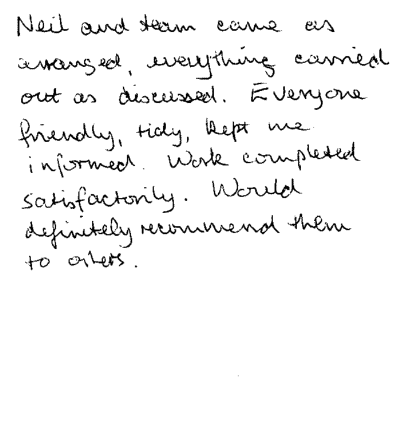 Neil and team came as
arranged, everything carried
out as discussed. Everyone
friendly, tidy, kept me
informed. Work completed
satisfactorily. Would
definitely recommend them
to others.